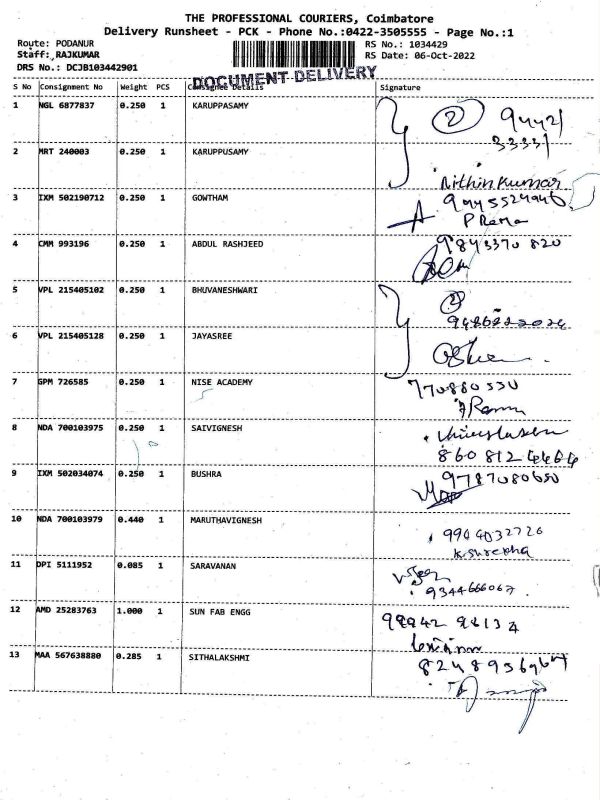 THE PROFESSIONAL COURIERS, Coimbatore
Delivery Runsheet - PCK - Phone No.:0422-3505555 - Page No.:1
Route: PODANUR RS No.: 1034429
Staff: RAJKUMAR RS Date: 06-Oct-2022
DRS No.: DCJB103442901
DOCUMENT DELIVERY
S No Consignment No Weight PCS Consignee Details Signature
1 NGL 6877837 0.250 1 KARUPPASAMY 2 94421
33331
2 MRT 240003 0.250 1 KARUPPUSAMY
Nithin Kumar
3 IXM 502190712 0.250 1 GOWTHAM
P Rama
4 CMM 993196 0.250 1 ABDUL RASHJEED 9843370 820
5 VPL 215405102 0.250 1 BHUVANESHWARI 2
6 VPL 215405128 0.250 1 JAYASREE
7 GPM 726585 0.250 1 NISE ACADEMY
8 NDA 700103975 0.250 1 SAIVIGNESH
860 812 4464
9 IXM 502034074 0.250 1 BUSHRA 9787080650
10 NDA 700103979 0.440 1 MARUTHAVIGNESH 9944032726
K. Surekha
11 DPI 5111952 0.085 1 SARAVANAN
9344666067
12 AMD 25283763 1.000 1 SUN FAB ENGG
13 MAA 567638880 0.285 1 SITHALAKSHMI 8248936967